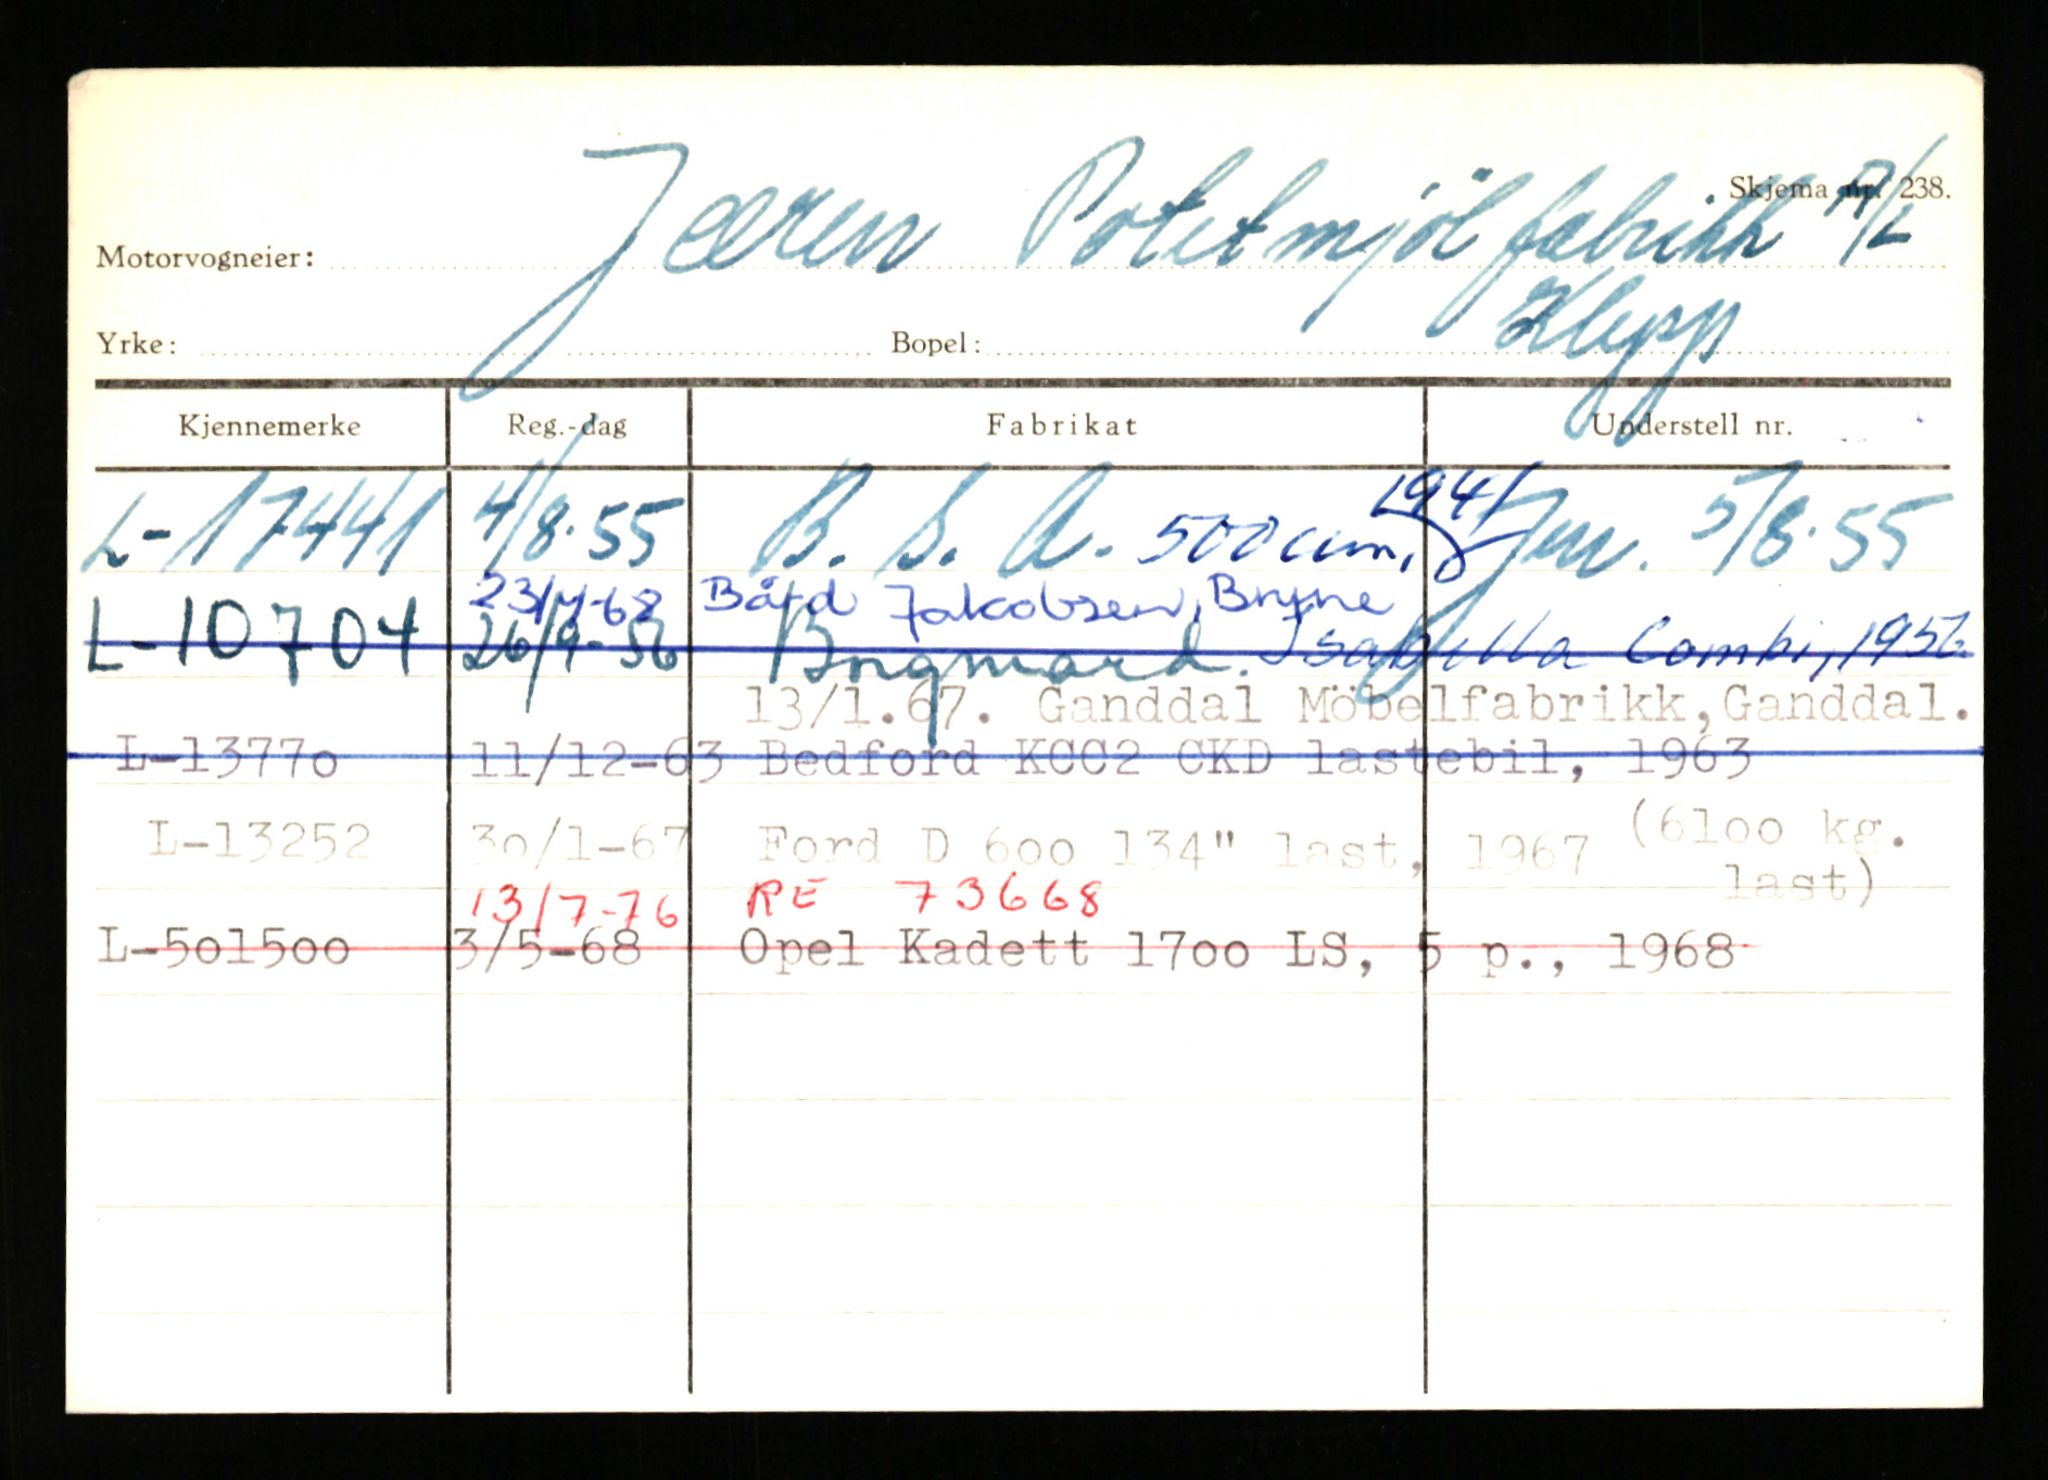 Skjema nr. 238.
Motorvogneier: Jæren Potetmjöl fabrikk A/L
Yrke: Bopel: Klepp
Kjennemerke Reg.-dag Fabrikat Understell nr.
L-17441 4/8.55 B. S. A. 500 ccm, 1941 5/8.55
23/4-68 Bård Jakobsen, Bryne
L-10704 26/9-56 Borgward Isabella Combi, 1956
13/1.67. Ganddal Möbelfabrikk, Ganddal.
L-13770 11/12-63 Bedford KCC2 CKD lastebil, 1963
L-13252 30/1-67 Ford D 600 134" last, 1967 (6100 kg. last)
13/7-76 RE 73668
L-501500 3/5-68 Opel Kadett 1700 LS, 5 p., 1968